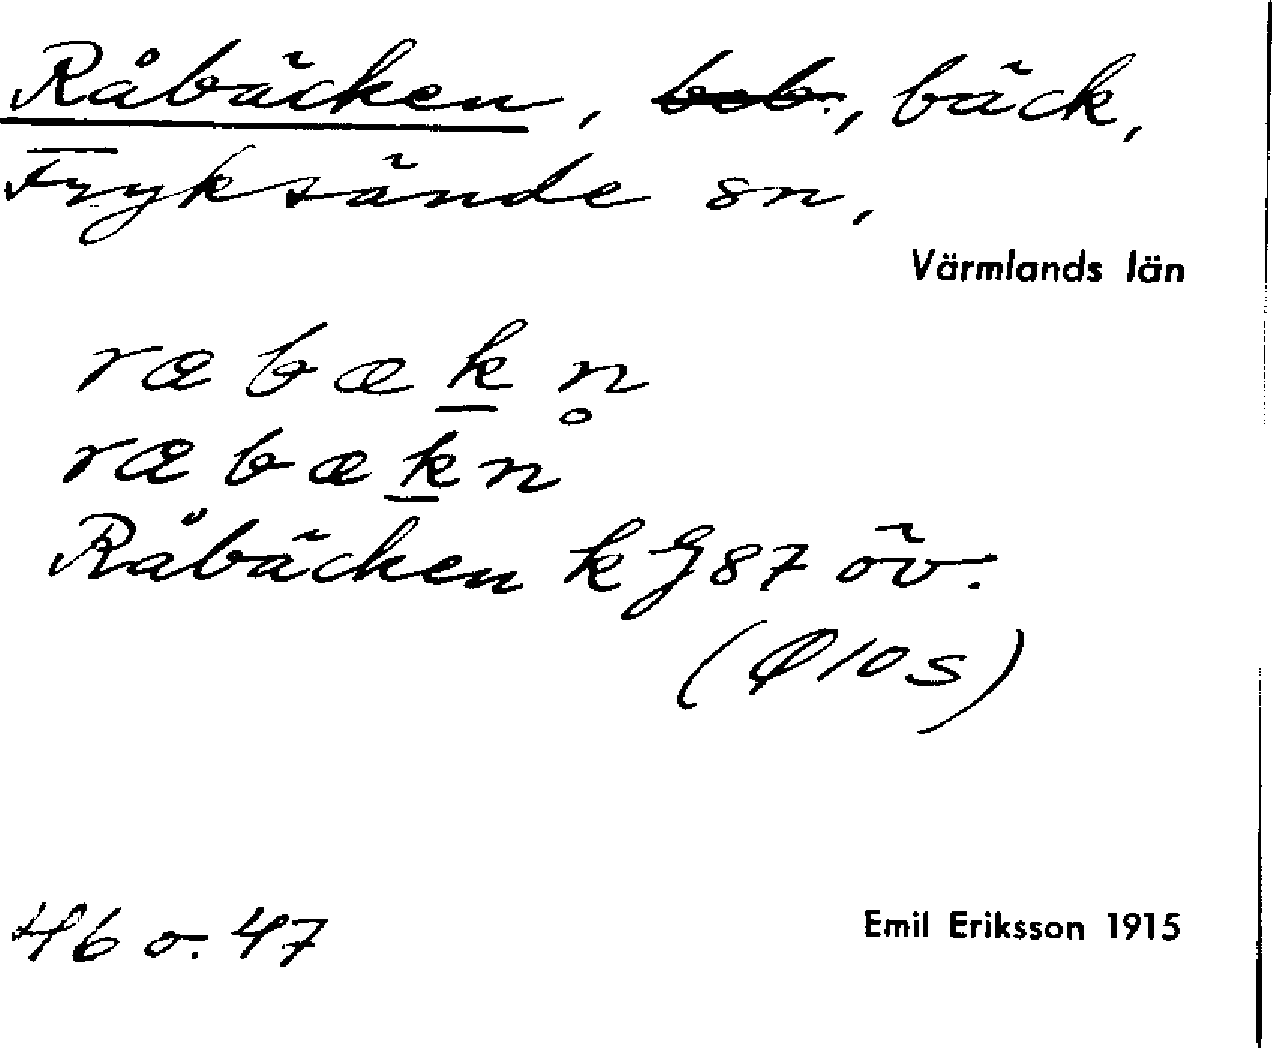 Råbäcken, beb., bäck,
Fryksände sn,
Värmlands län
ræbæk̲n̥
ræbæk̲n
Råbäcken k G87 öv.
(Ø10s)
46 o. 47
Emil Eriksson 1915